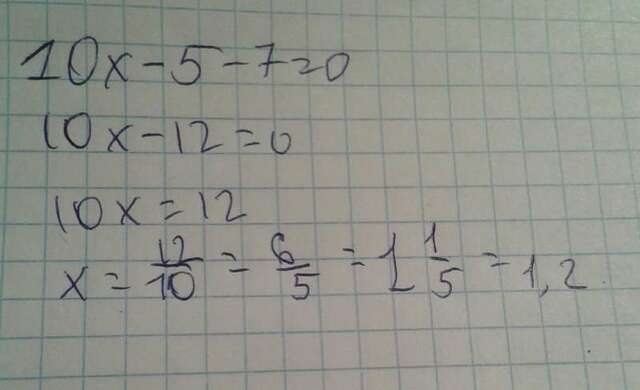 10x-5-7=0
10x-12=0
10x=12
x=12/10=6/5=1 1/5=1,2